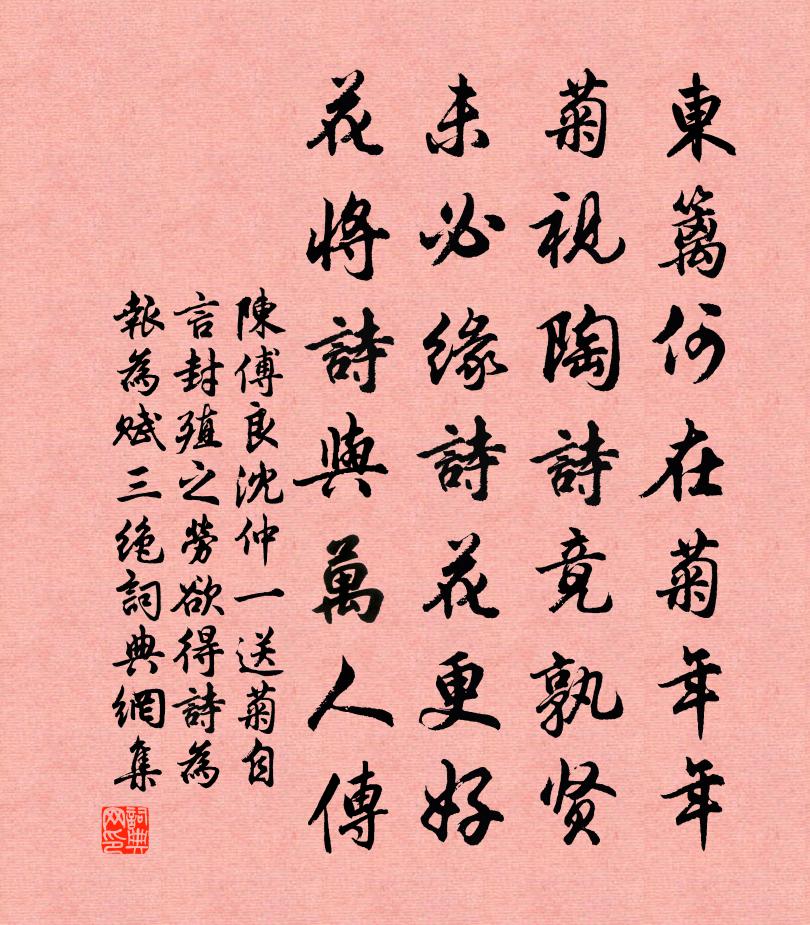 東籬何在菊年年
菊視陶詩竟孰贤
未必缘詩花更好
花將詩與萬人傳
陳傅良沈仲一送菊自
言封殖之勞欲得詩為
報為赋三绝詞典網集
詞典网印